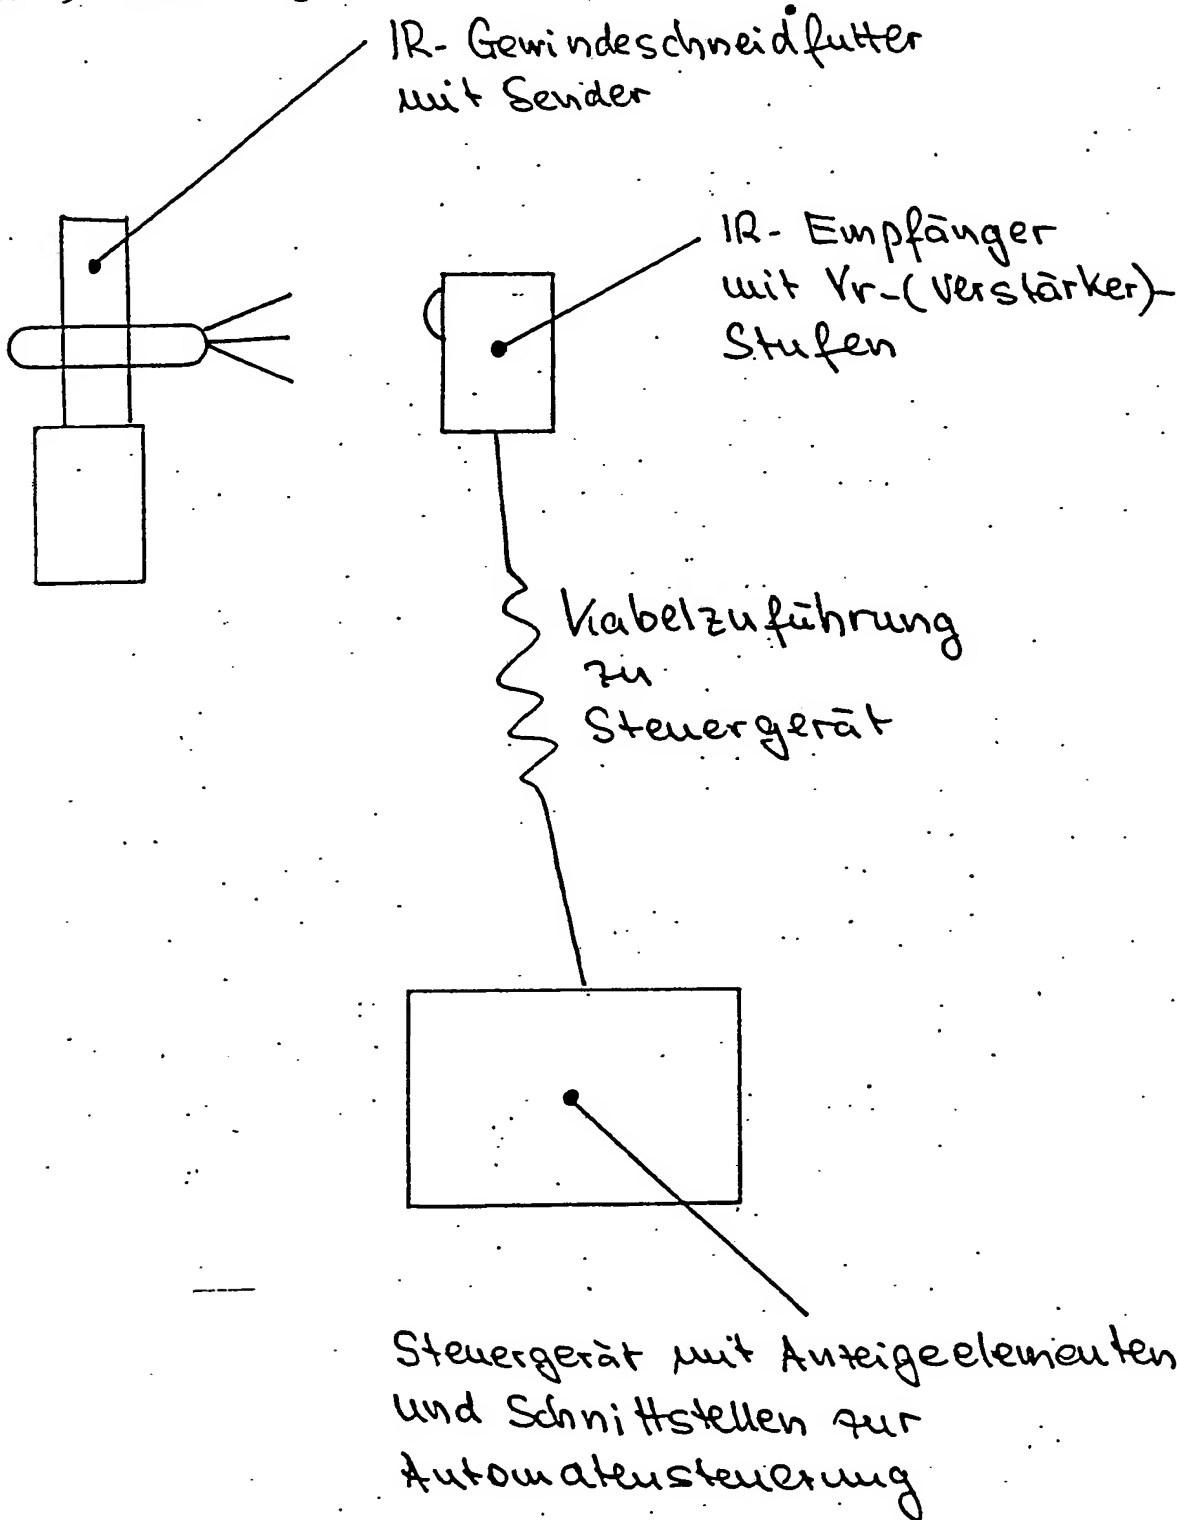 IR- Gewindeschneidfutter
mit Sender
IR- Empfänger
mit Vr-(Verstärker)-
Stufen
Kabelzuführung
zu
Steuergerät
Steuergerät mit Anzeigeelementen
und Schnittstellen zur
Automatensteuerung